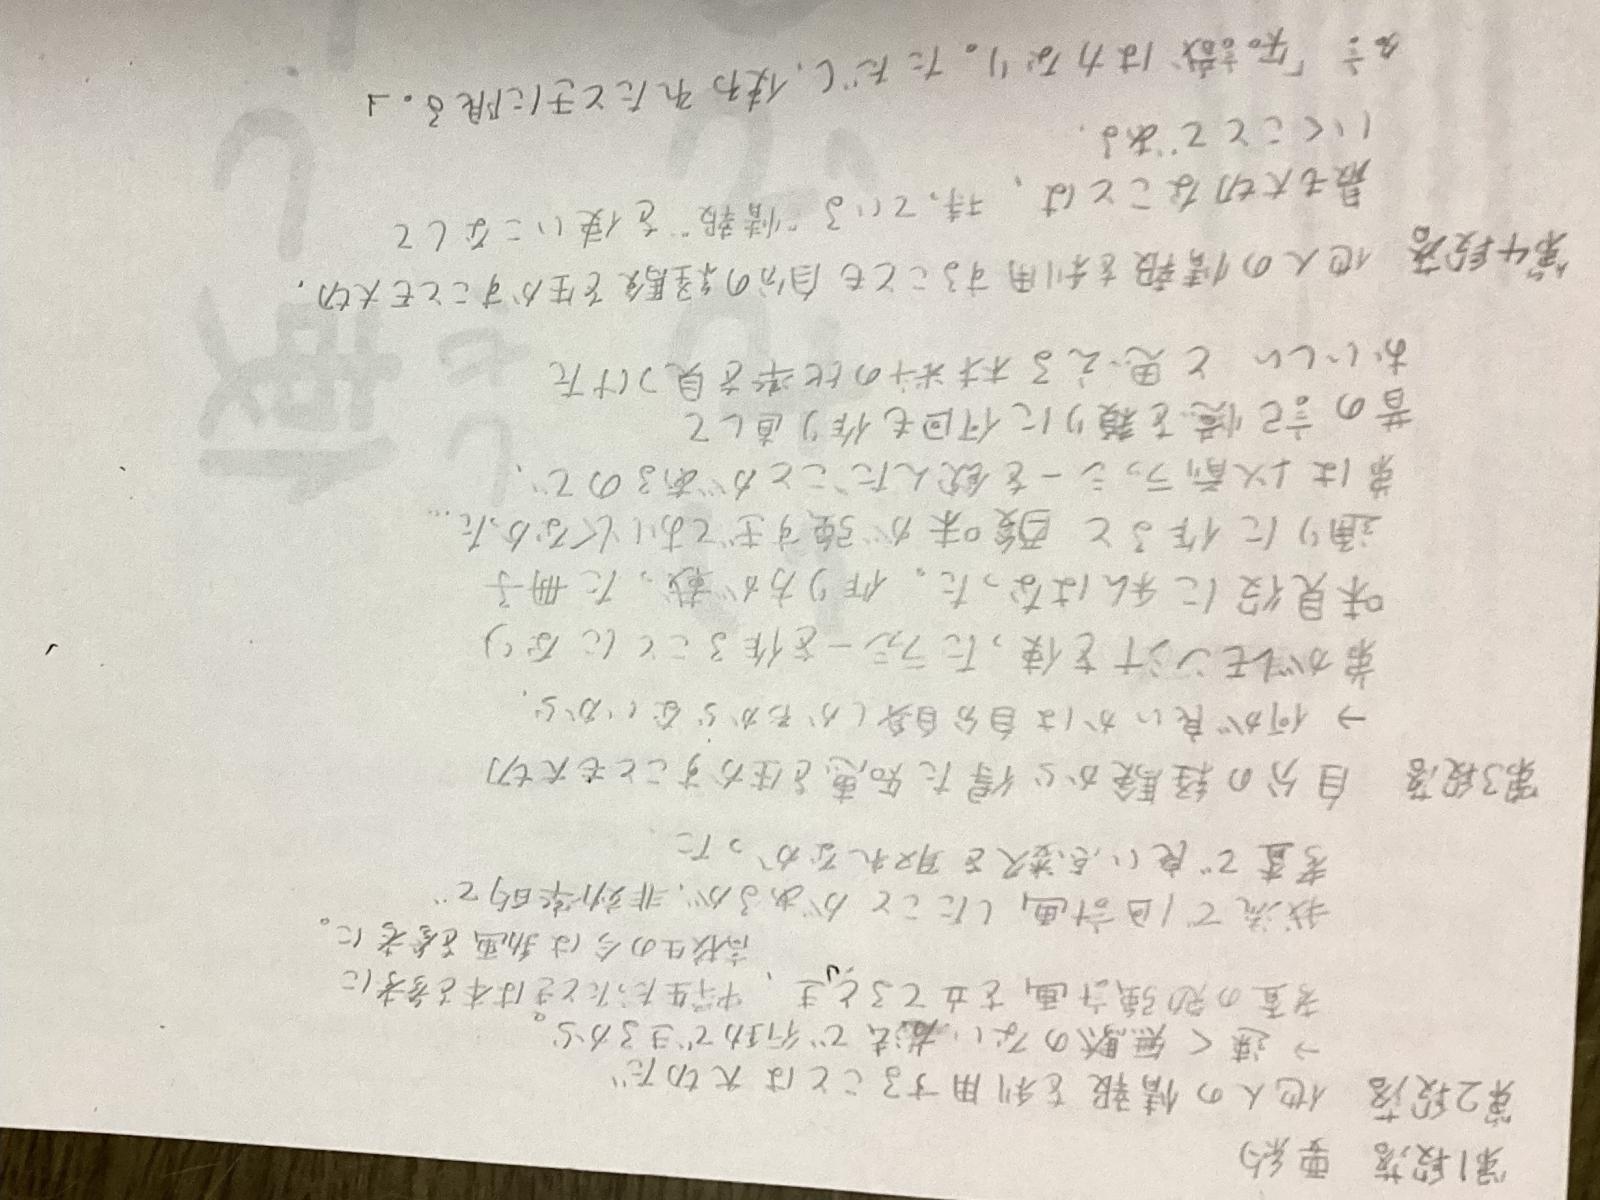 第1段落 要約
第2段落 他人の情報を利用することは大切だ
→ 速く無駄のない形で行動できるから。
考査の勉強計画を立てるとき、中学生だったときは本を参考に
高校生の今は動画を参考に。
我流で1回計画したことがあるが、非効率的で
考査で良い点数を取れなかった
第3段落 自分の経験から得た知恵を生かすことも大切
→ 何が良いかは自分自身しかわからないから。
弟がレモンジュースを使ったラッシーを作ることになり
味見役に私はなった。作り方が載った冊子
通りに作ると酸味が強すぎておいしくなかった…
弟は以前ラッシーを飲んだことがあるので、
昔の記憶を頼りに何回も作り直して
おいしいと思える材料の比率を見つけた
第4段落 他人の情報を利用することも自分の経験を生かすことも大切。
最も大切なことは、持っている"情報"を使いこなして
いくことである。
名言「知識は力なり。ただし、使われたときに限る。」